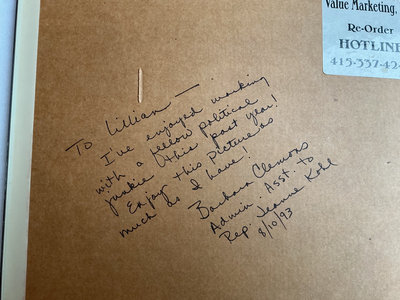 Value Marketing,
Re-Order
HOTLINE
415-337-42
To Lillian —
I've enjoyed working
with a fellow political
junkie this past year!
Enjoy this picture as
much as I have!
Barbara Clemons
Admin. Asst. to
Rep. Jeanne Kohl
8/10/93